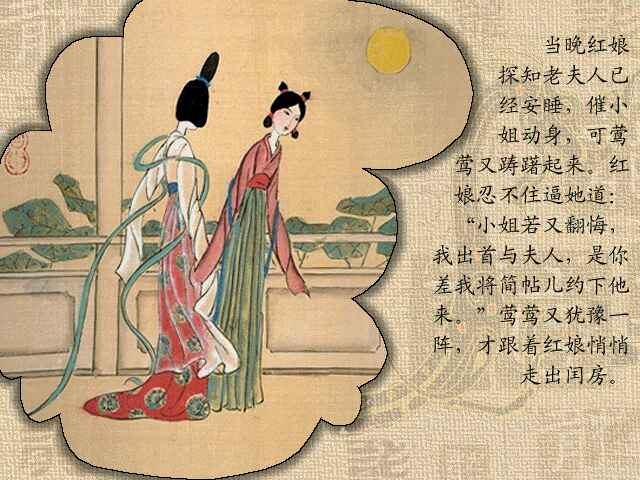 当晚红娘
探知老夫人已
经安睡，催小
姐动身，可莺
莺又踌躇起来。红
娘忍不住逼她道：
“小姐若又翻悔，
我出首与夫人，是你
差我将简帖儿约下他
来。”莺莺又犹豫一
阵，才跟着红娘悄悄
走出闺房。